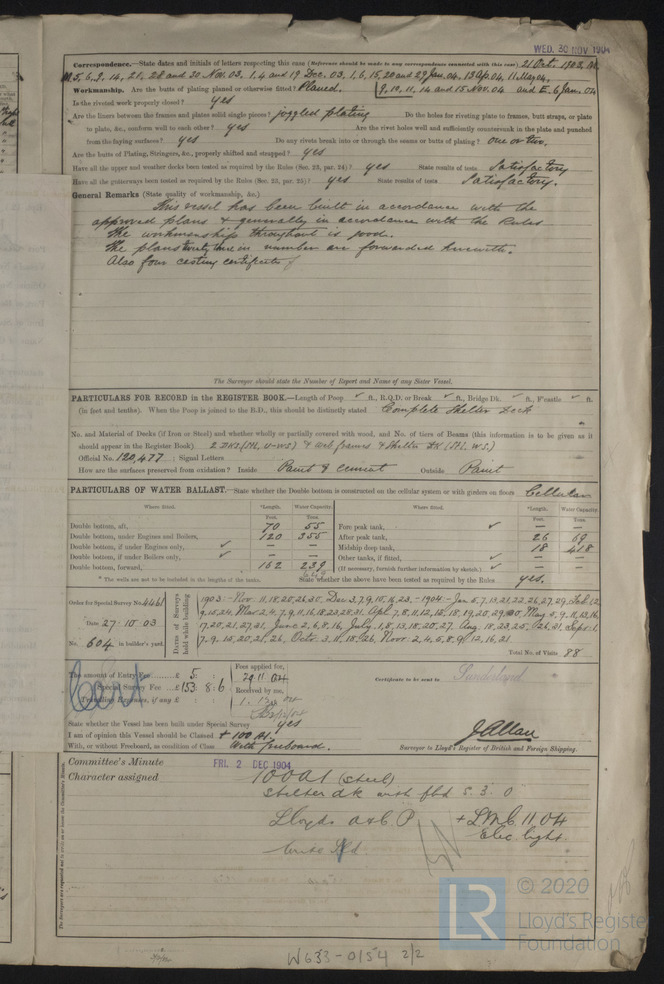 WED. 30 NOV 1904
Correspondence.—State dates and initials of letters respecting this case (Reference should be made to any correspondence connected with this case) 21 Oct. 1903,
5, 6, 9, 14, 21, 28 and 30 Nov. 03, 1, 4 and 19 Dec. 03, 1, 6, 15, 20 and 29 Jan. 04, 13 Ap. 04, 11 May 04,
Workmanship. Are the butts of plating planed or otherwise fitted? Planed. 9, 10, 11, 14 and 15 Nov. 04 and E. 6 Jan. 04
Is the riveted work properly closed? yes
Are the liners between the frames and plates solid single pieces? joggled plating Do the holes for riveting plate to frames, butt straps, or plate
to plate, &c., conform well to each other? yes Are the rivet holes well and sufficiently countersunk in the plate and punched
from the faying surfaces? yes Do any rivets break into or through the seams or butts of plating? one or two.
Are the butts of Plating, Stringers, &c., properly shifted and strapped? yes
Have all the upper and weather decks been tested as required by the Rules (Sec. 23, par. 24)? yes State results of tests Satisfactory
Have all the gutterways been tested as required by the Rules (Sec. 23, par. 25)? yes State results of tests Satisfactory.
General Remarks (State quality of workmanship, &c.)
This vessel has been built in accordance with the
approved plans & generally in accordance with the Rules
The workmanship throughout is good.
The plans twenty three in number are forwarded herewith.
Also four casting certificates
The Surveyor should state the Number of Report and Name of any Sister Vessel.
PARTICULARS FOR RECORD in the REGISTER BOOK.—Length of Poop ✓ ft., R.Q.D. or Break ✓ ft., Bridge Dk. ✓ ft., F'castle ✓ ft.
(in feet and tenths). When the Poop is joined to the B.D., this should be distinctly stated Complete Shelter Deck
No. and Material of Decks (if Iron or Steel) and whether wholly or partially covered with wood, and No. of tiers of Beams (this information is to be given as it
should appear in the Register Book). 2 DKs & web frames & Shelter Dk
Official No. 120,477 ; Signal Letters
How are the surfaces preserved from oxidation? Inside Paint & Cement Outside Paint
PARTICULARS OF WATER BALLAST.—State whether the Double bottom is constructed on the cellular system or with girders on floors Cellular
Where fitted. *Length. Water Capacity. Where fitted. *Length. Water Capacity
Feet. Tons. Feet. Tons.
Double bottom, aft, 70 55 Fore peak tank, ✓ — —
Double bottom, under Engines and Boilers, 120 355 After peak tank, 26 69
Double bottom, if under Engines only, ✓ — — Midship deep tank, 18 418
Double bottom, if under Boilers only, ✓ — — Other tanks, if fitted, ✓ — —
Double bottom, forward, 162 239 (If necessary, furnish further information by sketch.) ✓
* The wells are not to be included in the lengths of the tanks. 649 State whether the above have been tested as required by the Rules yes.
Order for Special Survey No. 4461
Date 27. 10 03
No. 604 in builder's yard.
Dates of Surveys held while building
1903:- Nov. 11, 18, 20, 26, 30. Dec. 3, 7, 9, 10, 16, 23, - 1904 - Jan. 5, 7, 13, 21, 22, 26, 27, 29, Feb. 1, 2,
9, 15, 24, Mar. 2, 4, 7, 9, 11, 16, 18, 23, 28, 31. Apl. 7, 8, 11, 12, 15, 18, 19, 20, 29, 30 May 4, 9, 11, 13, 16,
17, 20, 21, 27, 31, June 2, 6, 8, 16, July 1, 8, 13, 18, 20, 27, Aug. 18, 23, 25, 26, 31, Sept. 1,
7, 9, 15, 20, 21, 26, Octr. 3, 11, 18, 26, Novr. 2, 4, 5, 8, 9, 12, 16, 21
Total No. of Visits 88
The amount of Entry Fee £ 5 : :
Special Survey Fee £ 153 : 8 : 6
Travelling Expenses, if any £ : :
Cert
Fees applied for,
29 11 04
Received by me,
Certificate to be sent to Sunderland
State whether the Vessel has been built under Special Survey yes
I am of opinion this Vessel should be Classed + 100 A1.
With, or without Freeboard, as condition of Class With freeboard.
J Allan
Surveyor to Lloyd's Register of British and Foreign Shipping.
Committee's Minute FRI. 2 DEC 1904
Character assigned 100A1 (steel)
Shelter dk with fbd 5. 3. 0
Lloyds A & C P + LMC 11. 04
Elec light.
W633-0154 2/2
LR
© 2020
Lloyd's Register
Foundation